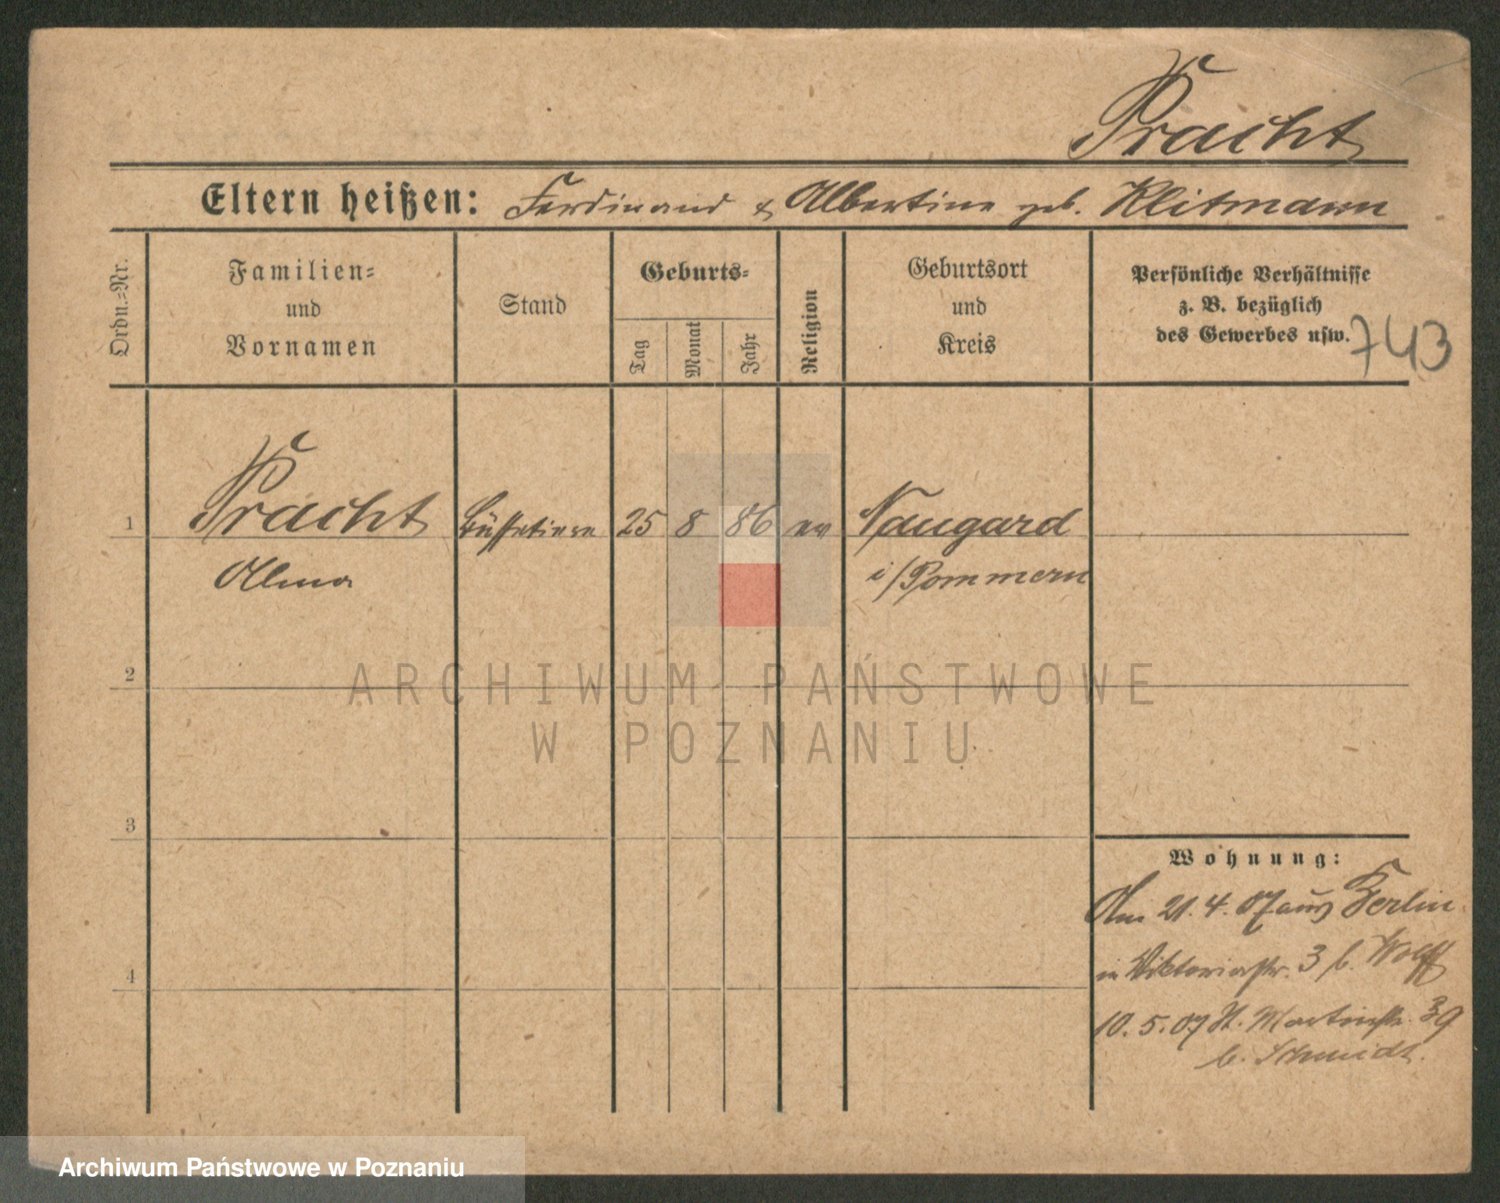 Pracht
Eltern heißen: Ferdinand & Albertine geb. Klitmann
Ordn.=Nr.
Familien=
und
Vornamen
Stand
Geburts=
Tag
Monat
Jahr
Religion
Geburtsort
und
Kreis
Persönliche Verhältnisse
z. B. bezüglich
des Gewerbes usw.
743
1 Pracht Büffetiere 25 8 86 ev Naugard
Alma i/Pommern
2
ARCHIWUM PAŃSTWOWE
W POZNANIU
3
Wohnung:
Am 21. 4. 07 aus Berlin.
in Viktoriastr. 3 b. Wolff
4
10. 5. 07 St. Martinstr. 39
b. Schmidt.
Archiwum Państwowe w Poznaniu